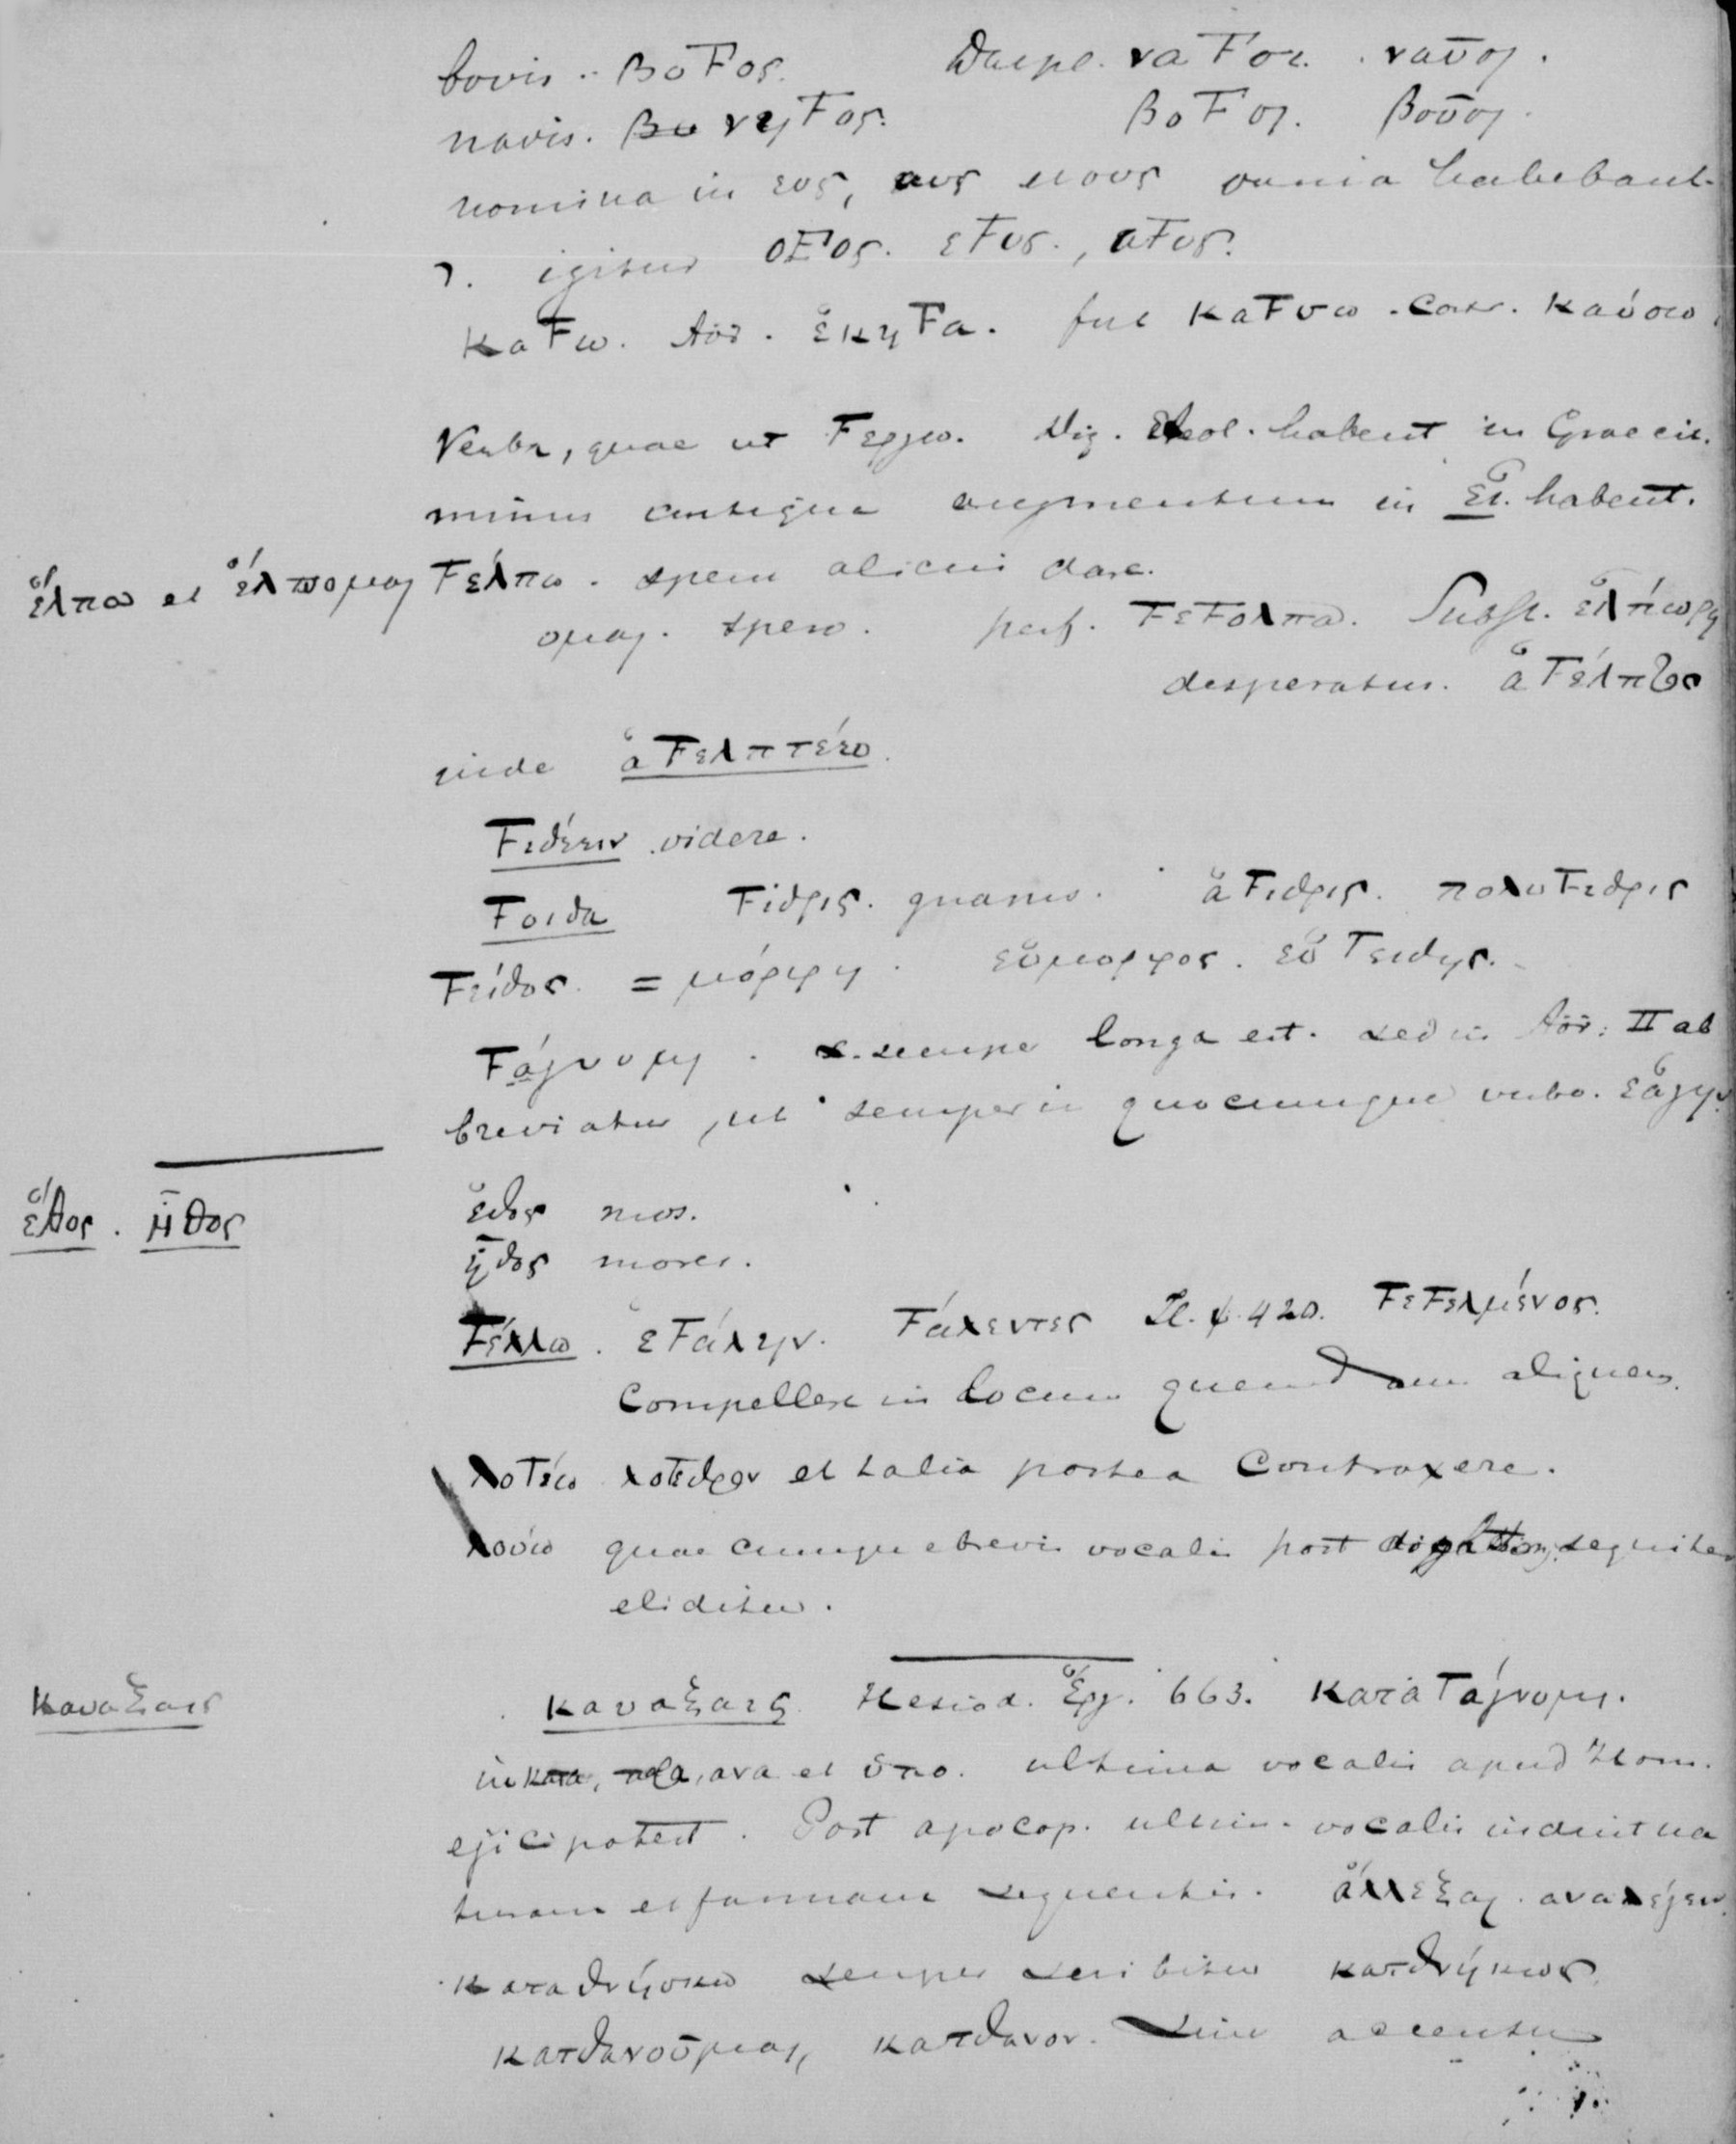 bovis .. βοϜος. Dat pl. ναϜσι. . ναῦσι.
navis. νηϜος. βοϜσι. βουσι.
nomina in ευς, αυς et ους omnia habebant
igitur οϜος. εϜυς., αϜυς.
καϜω. Aor. ἐκηϜα. fut καϜσω. contr. καύσω.
Verba, quae ut Ϝεργω. Dig. Aeol. habent in Graecis.
minus antiqua augmentum in ει. habent.
ἔλπω et ἔλπομαι Ϝέλπω. spem alicui dare.
ομαι. spero. perf. ϜεϜολπα. Subst. ἐλπωρή
desperatus. ἀϜέλπτος
inde ἀϜελπτέω.
Ϝιδέειν videre.
Ϝοιδα Ϝίδρις. gnarus. ἀϜιδρις. πολυϜιδρις
Ϝείδος. = μόρφη. εὐμορφος. εὐϜειδης.
Ϝάγνυμι. α. semper longa est. sed in Aor. II ab
breviatur, ut semper in quocumque verbo. ἐάγην
ἔθος. ἦθος
ἔθος mos.
ἦθος mores.
Ϝέλλω. ἐϜάλην. Ϝάλεντες Il. ψ. 420. ϜεϜελμένος.
Compellere in locum quemdam aliquem.
λοϜέω λοϜεθρον et talia postea contraxere.
λούω quaecumque brevis vocalis post digamm. sequitur
eliditur.
καυαξαις
καυαξαις Hesiod. Ἐργ. 663. καταϜάγνυμι.
in κατα, παρα, ανα et ὑπο. ultima vocalis apud Hom.
ejici potest. Post apocop. ultim. vocalis induit na
turam et formam sequentis. ἀλλεξαι. αναλέγειν.
καταθνήσκω semper scribitur κατθνήκως
κατθανοῦμαι, κατθανον. sine accentu